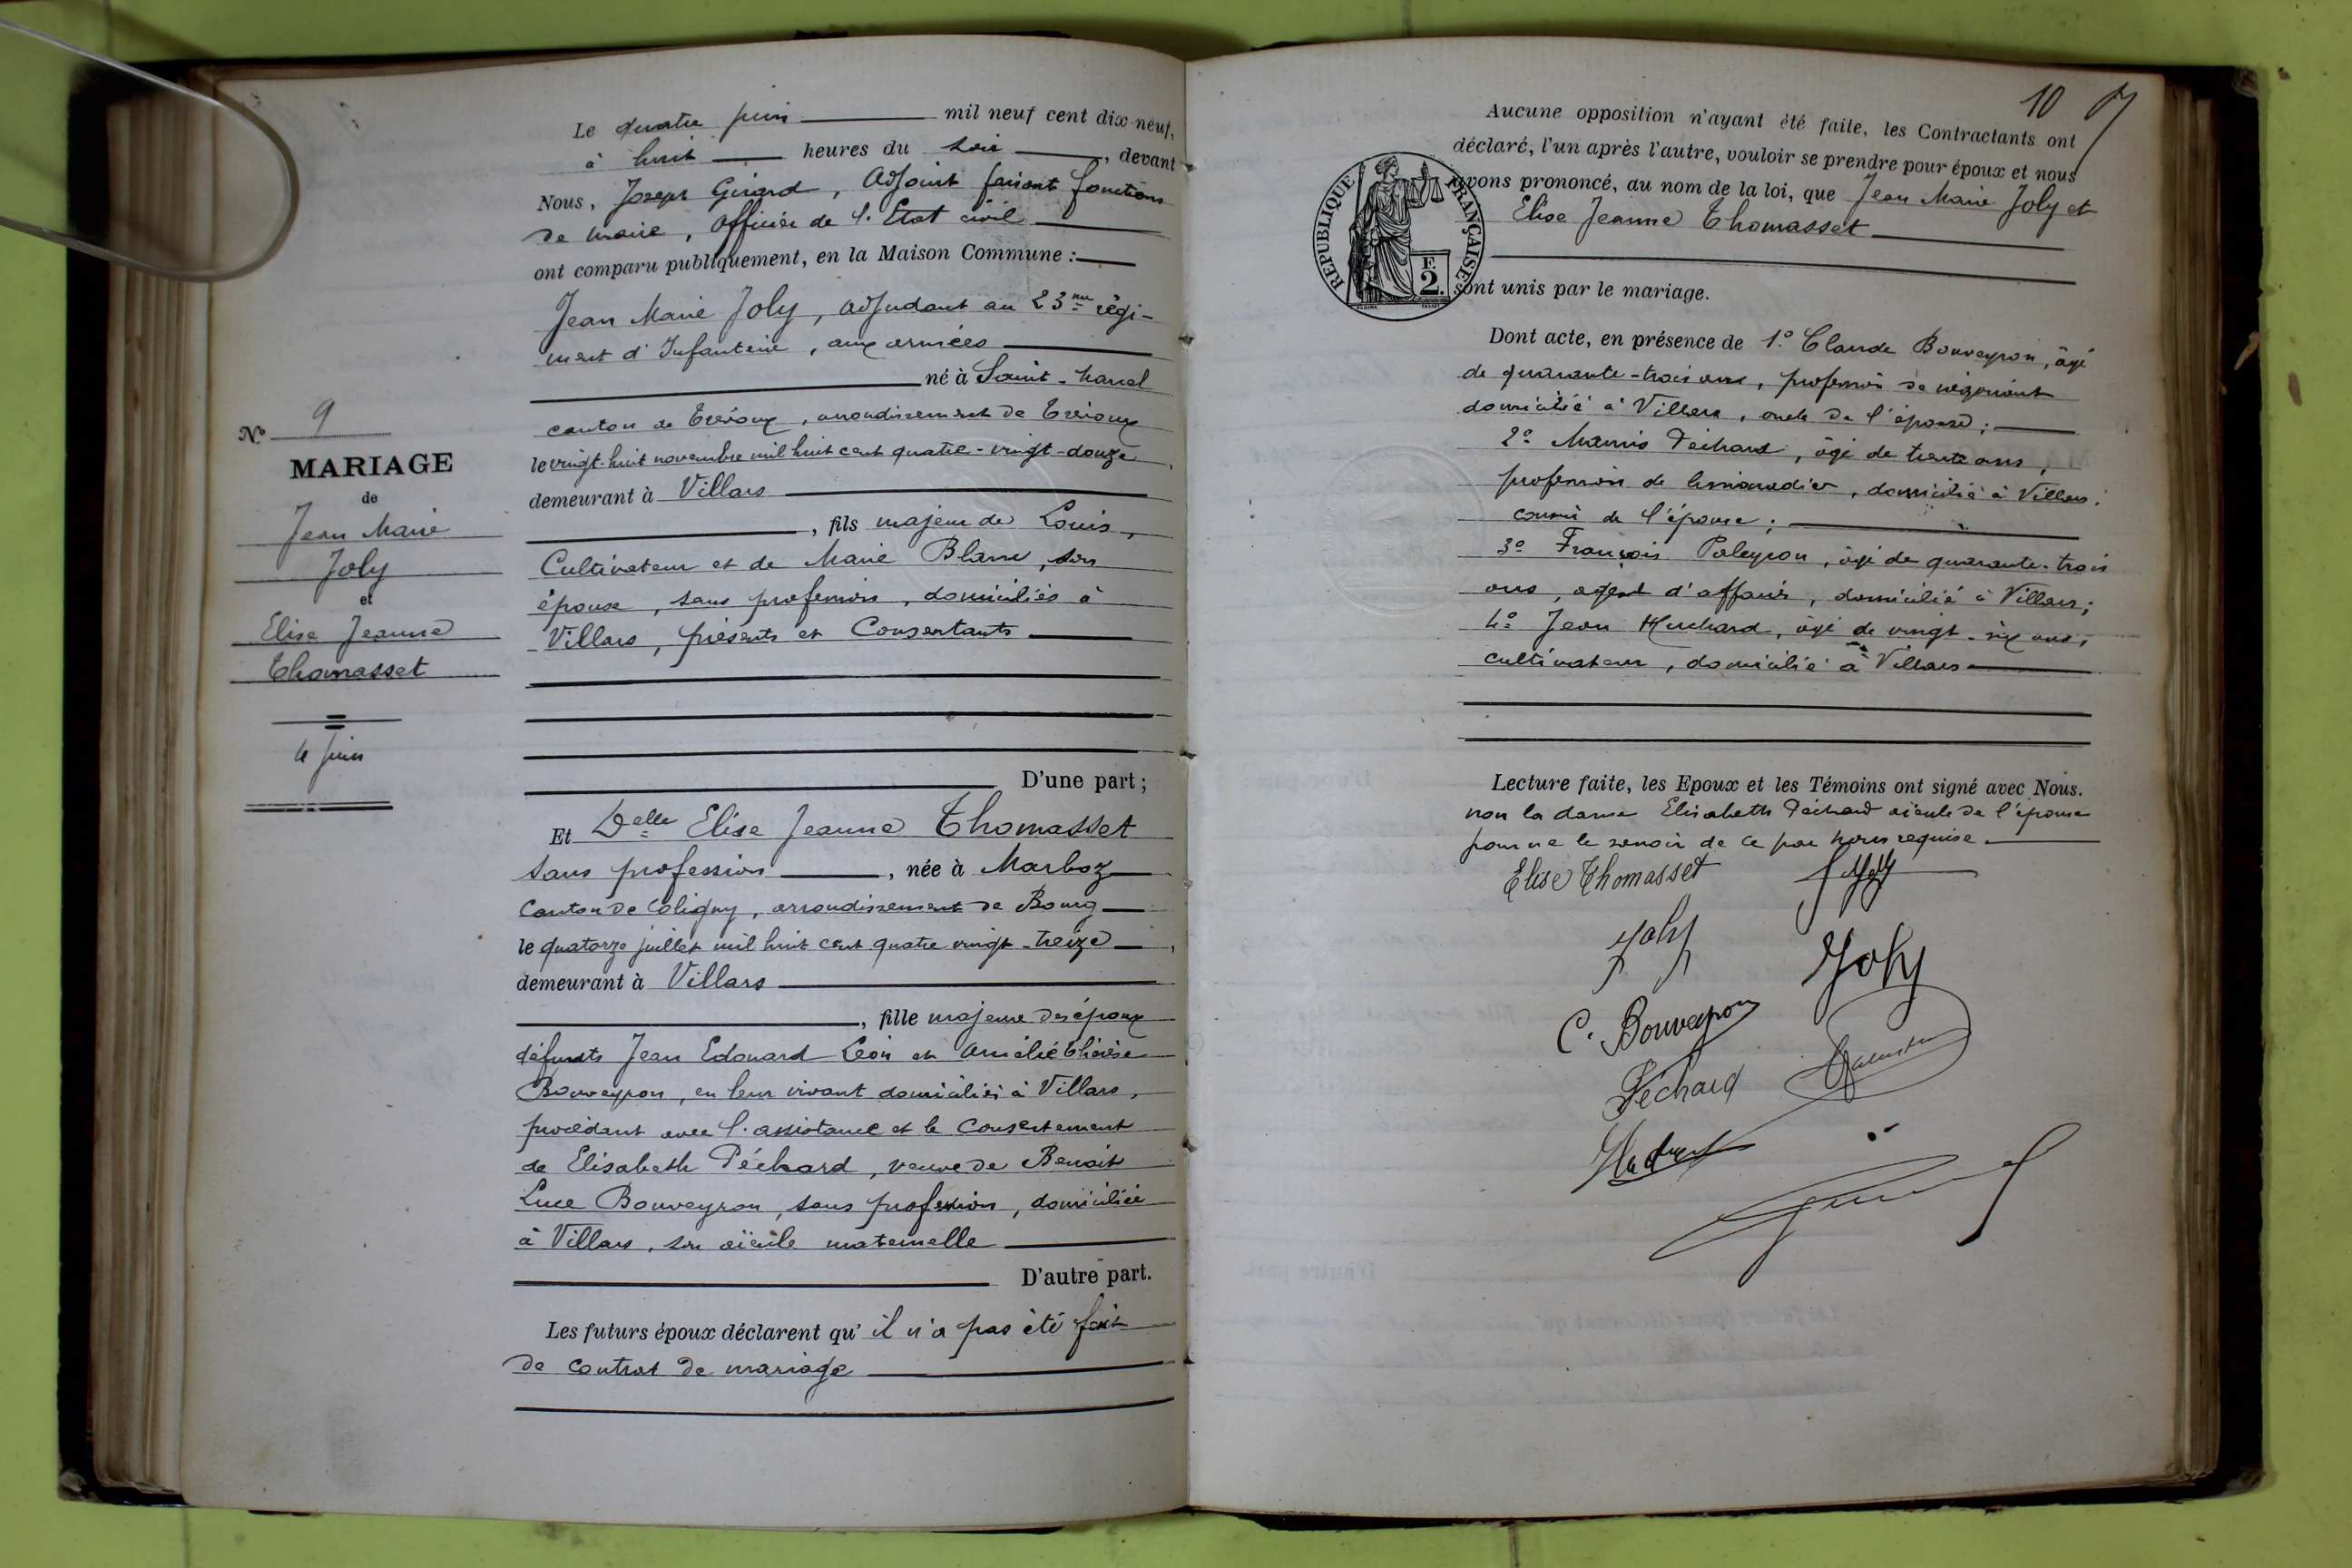 Le quatre juin mil neuf cent dix-neuf,
à huit heures du soir, devant
Nous, Joseph Girard, Adjoint faisant fonctions
de maire, officier de l'Etat civil
ont comparu publiquement, en la Maison Commune :
Jean Marie Joly, adjudant au 23me régi-
ment d'Infanterie, aux armées
né à Saint-Marcel
canton de Trévoux, arrondissement de Trévoux
le vingt-huit novembre mil huit cent quatre-vingt-douze,
demeurant à Villars
, fils majeur de Louis,
Cultivateur et de Marie Blanc, son
épouse, sans profession, domiciliés à
Villars, présents et Consentants
D'une part ;
Et Delle Elise Jeanne Thomasset
sans profession, née à Marboz
Canton de Coligny, arrondissement de Bourg
le quatorze juillet mil huit cent quatre vingt-treize,
demeurant à Villars
, fille majeure des époux
défunts Jean Edouard Léon et Amélie Thérèse
Bouveyron, en leur vivant domiciliés à Villars,
procédant avec l'assistance et le Consentement
de Elisabeth Péchard, veuve de Benoit
Luce Bouveyron, sans profession, domiciliée
à Villars, son aïeule maternelle
D'autre part.
Les futurs époux déclarent qu'il n'a pas été fait
de contrat de mariage
No 9
MARIAGE
de
Jean Marie
Joly
et
Elise Jeanne
Thomasset
4 juin
10
Aucune opposition n'ayant été faite, les Contractants ont
déclaré, l'un après l'autre, vouloir se prendre pour époux et nous
avons prononcé, au nom de la loi, que Jean Marie Joly et
Elise Jeanne Thomasset
sont unis par le mariage.
REPUBLIQUE FRANÇAISE
F.
2.
Dont acte, en présence de 1° Claude Bouveyron, âgé
de quarante-trois ans, profession de négociant
domicilié à Villars, oncle de l'épouse ;
2° Marius Péchard, âgé de trente ans,
profession de limonadier, domicilié à Villars,
cousin de l'épouse ;
3° François Paleyron, âgé de quarante-trois
ans, agent d'affaires, domicilié à Villars ;
4° Jean, âgé de vingt-six ans,
cultivateur, domicilié à Villars
Lecture faite, les Epoux et les Témoins ont signé avec Nous.
non la dame Elisabeth Péchard aïeule de l'épouse
pour ne le savoir de ce par nous requise.
Elise Thomasset
Joly
Joly
C. Bouveyron
Péchard